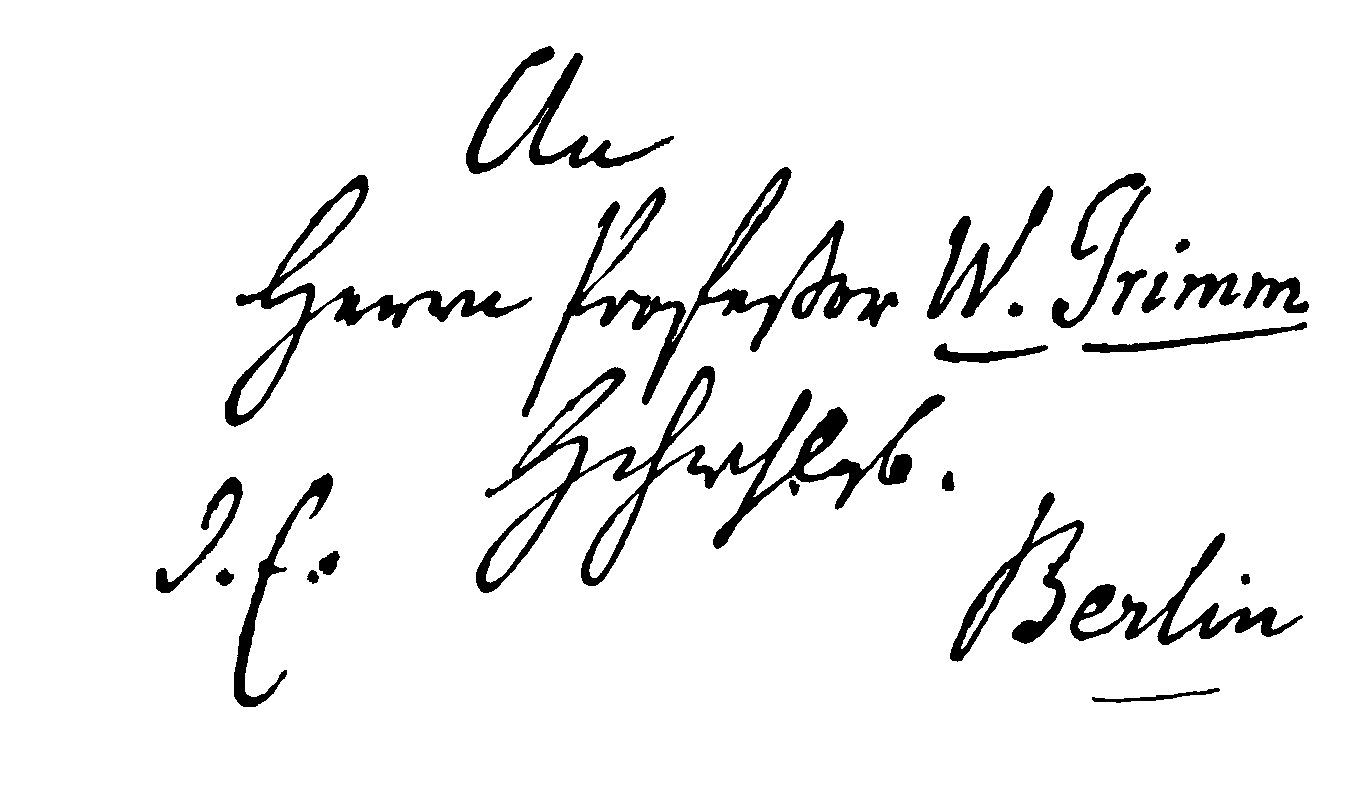 An
Herrn Profeßor W. Grimm
Hchwhlgb.
Berlin